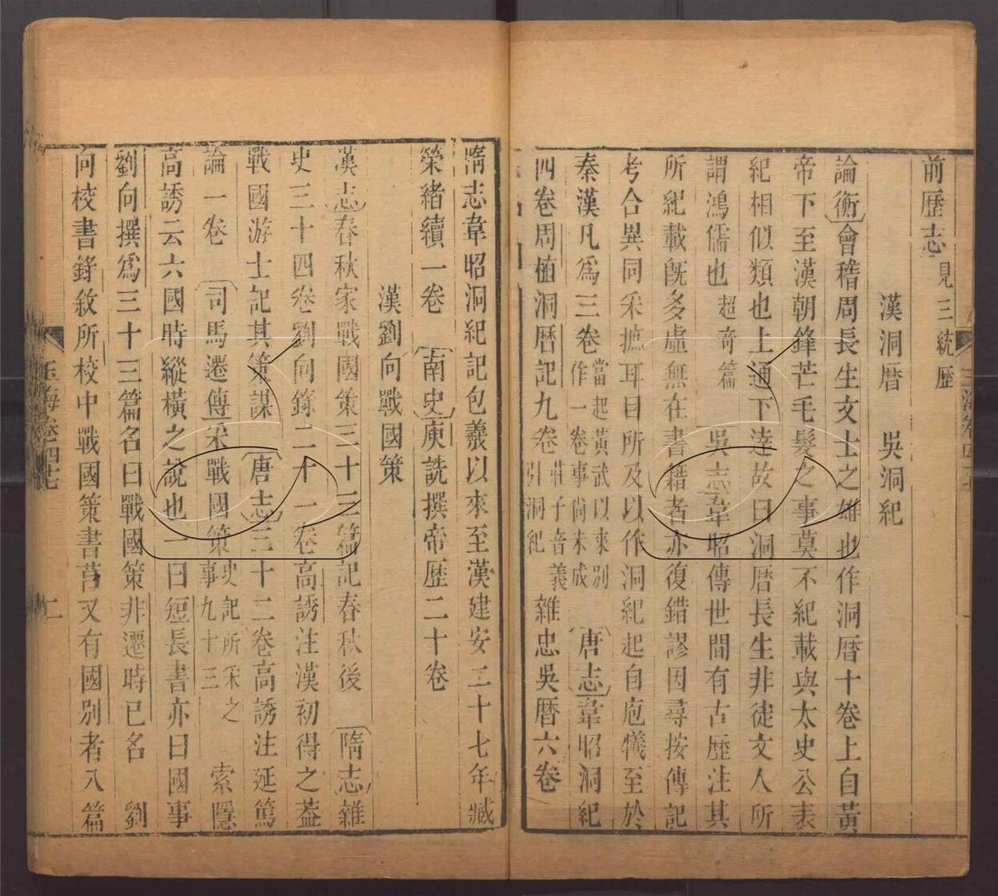 前歷志見三統歷
漢洞曆 吳洞紀
論衡會稽周長生文士之雄也作洞曆十卷上自黃
帝下至漢朝鋒芒毛髮之事莫不紀載與太史公表
紀相似類也上通下達故曰洞曆長生非徒文人所
謂鴻儒也超奇篇 吳志韋昭傳世間有古歷注其
所紀載旣多虛無在書籍者亦復錯謬因尋按傳記
考合異同采摭耳目所及以作洞紀起自庖犧至於
秦漢凡爲三卷當起黃武以來別作一卷事尚未成 唐志韋昭洞紀
四卷周樹洞曆記九卷莊子音義引洞紀 雜忠吳曆六卷
隋志韋昭洞紀記包羲以來至漢建安二十七年臧
榮緒續一卷 南史庾詵撰帝歷二十卷
漢劉向戰國策
漢志春秋家戰國策三十三篇記春秋後 隋志雜
史三十四卷劉向錄二十一卷高誘注漢初得之蓋
戰國游士記其策謀 唐志三十二卷高誘注延篤
論一卷 司馬遷傳采戰國策史記所采之事九十三 索隱
高誘云六國時縱橫之說也一曰短長書亦曰國事
劉向撰爲三十三篇名曰戰國策非遷時已名 劉
向校書錄敘所校中戰國策書莒又有國別者八篇
玉海卷四十七 二